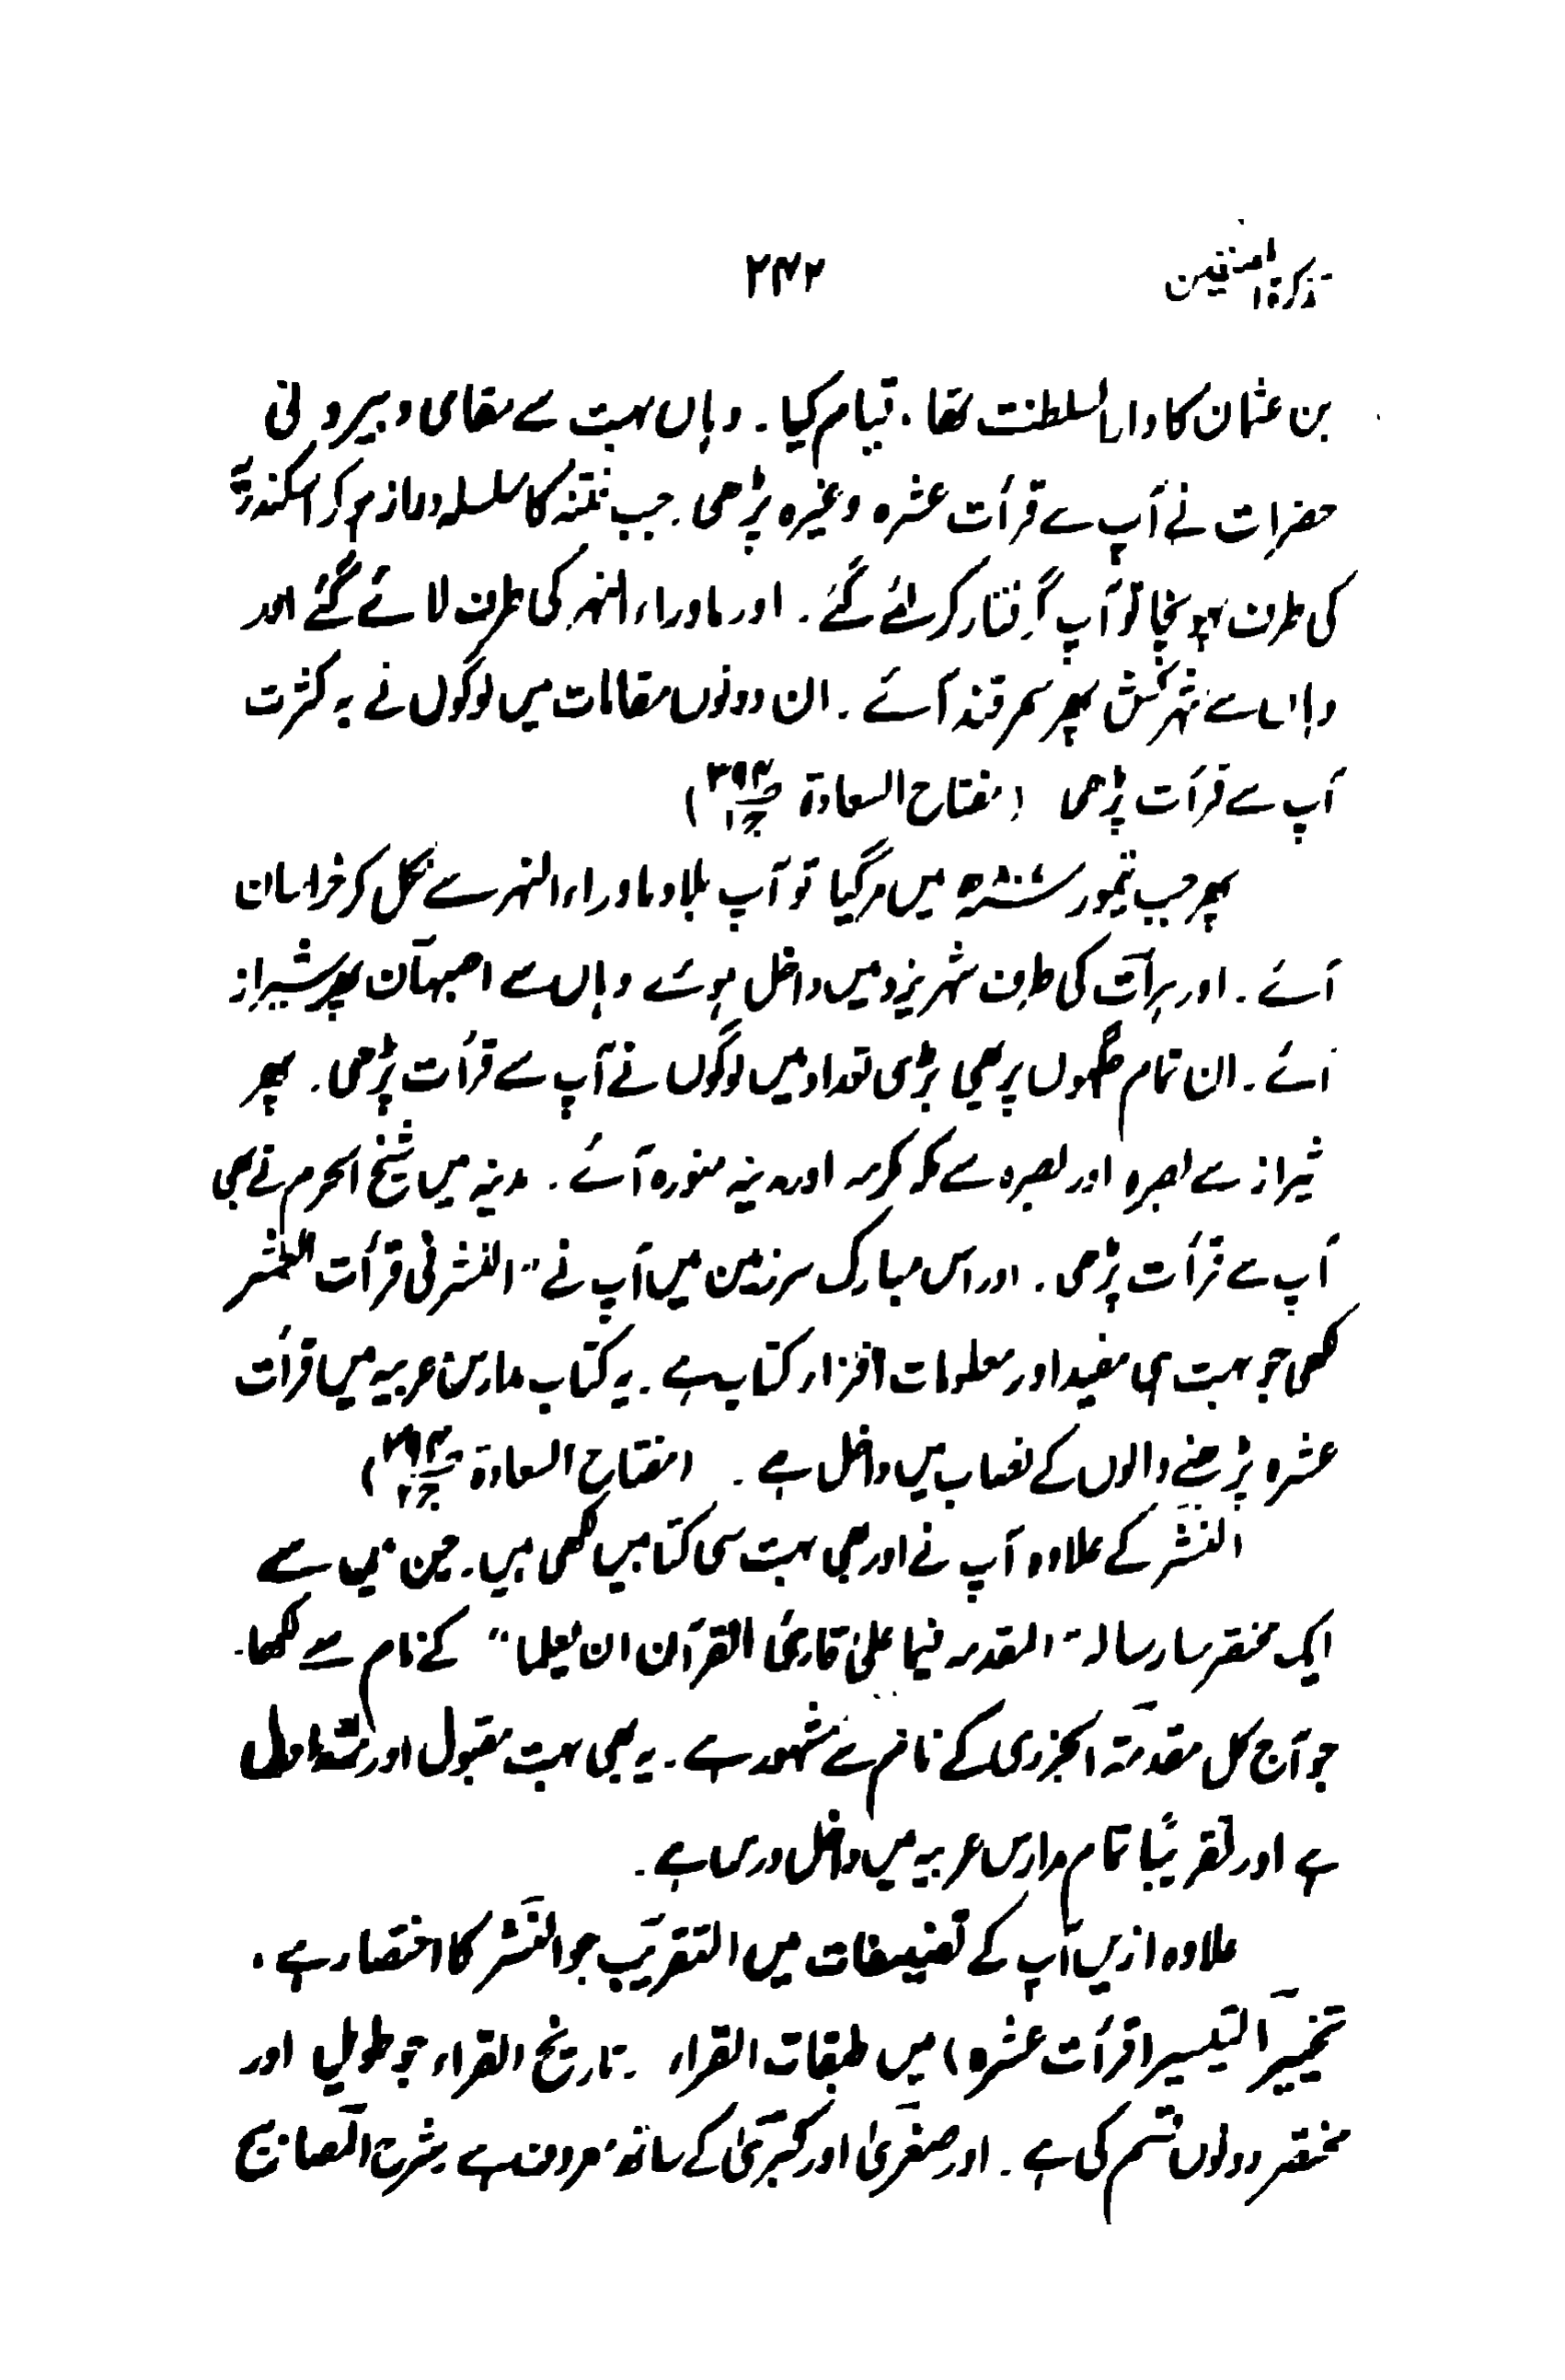 تذکرۃ المصنفین ۲۴۲
بن عثمان کا دارالسلطنت تھا، قیام کیا۔ وہاں بہت سے مقامی و بیرونی
حضرات نے آپ سے قرأت عشرہ وغیرہ پڑھی۔ جب فتنہ کا سلسلہ دراز ہو کر اسکندریہ
کی طرف پہونچا تو آپ گرفتار کر لئے گئے۔ اور ماوراء النہر کی طرف لائے گئے اور
وہاں سے شہر کش پھر سمرقند آئے۔ ان دونوں مقامات میں لوگوں نے بہ کثرت
آپ سے قرأت پڑھی (مفتاح السعادۃ ص۳۹۳ ج۱)
پھر جب تیمور میں مر گیا تو آپ بلاد ماوراء النہر سے نکل کر خراسان
آئے۔ اور ہرات کی طرف شہر یزد میں داخل ہوئے وہاں سے اصبہان پھر شیراز
آئے۔ ان تمام جگہوں پر بھی بڑی تعداد میں لوگوں نے آپ سے قرأت پڑھی۔ پھر
شیراز سے بصرہ اور بصرہ سے مکہ مکرمہ اور مدینہ منورہ آئے۔ مدینہ میں شیخ الحرم نے بھی
آپ سے قرأت پڑھی۔ اور اس مبارک سرزمین میں آپ نے "النشر فی قرأت العشر
لکھی جو بہت ہی مفید اور معلومات افزار کتاب ہے۔ یہ کتاب مدارس عربیہ میں قرأت
عشرہ پڑھنے والوں کے نصاب میں داخل ہے۔ (مفتاح السعادۃ)
النشر کے علاوہ آپ نے اور بھی بہت سی کتابیں لکھی ہیں۔ جن میں سے
ایک مختصر سا رسالہ "المقدمہ فیما علیٰ قاریٔ القرآن ان یعلما" کے نام سے لکھا۔
جو آج کل مقدمۃ الجزری کے نام سے مشہور ہے۔ یہ بھی بہت مقبول اور متداول
ہے اور تقریبًا تمام مدارس عربیہ میں داخل درس ہے۔
علاوہ ازیں آپ کے تصنیفات میں التقریب جو النشر کا اختصار ہے۔
تحبیر التیسیر (قرأت عشرہ) میں طبقات القراء ۔ تاریخ القراء جو طویل اور
مختصر دونوں قسم کی ہے۔ اور صغریٰ اور کبریٰ کے ساتھ معروف ہے۔ شرح المصابیح